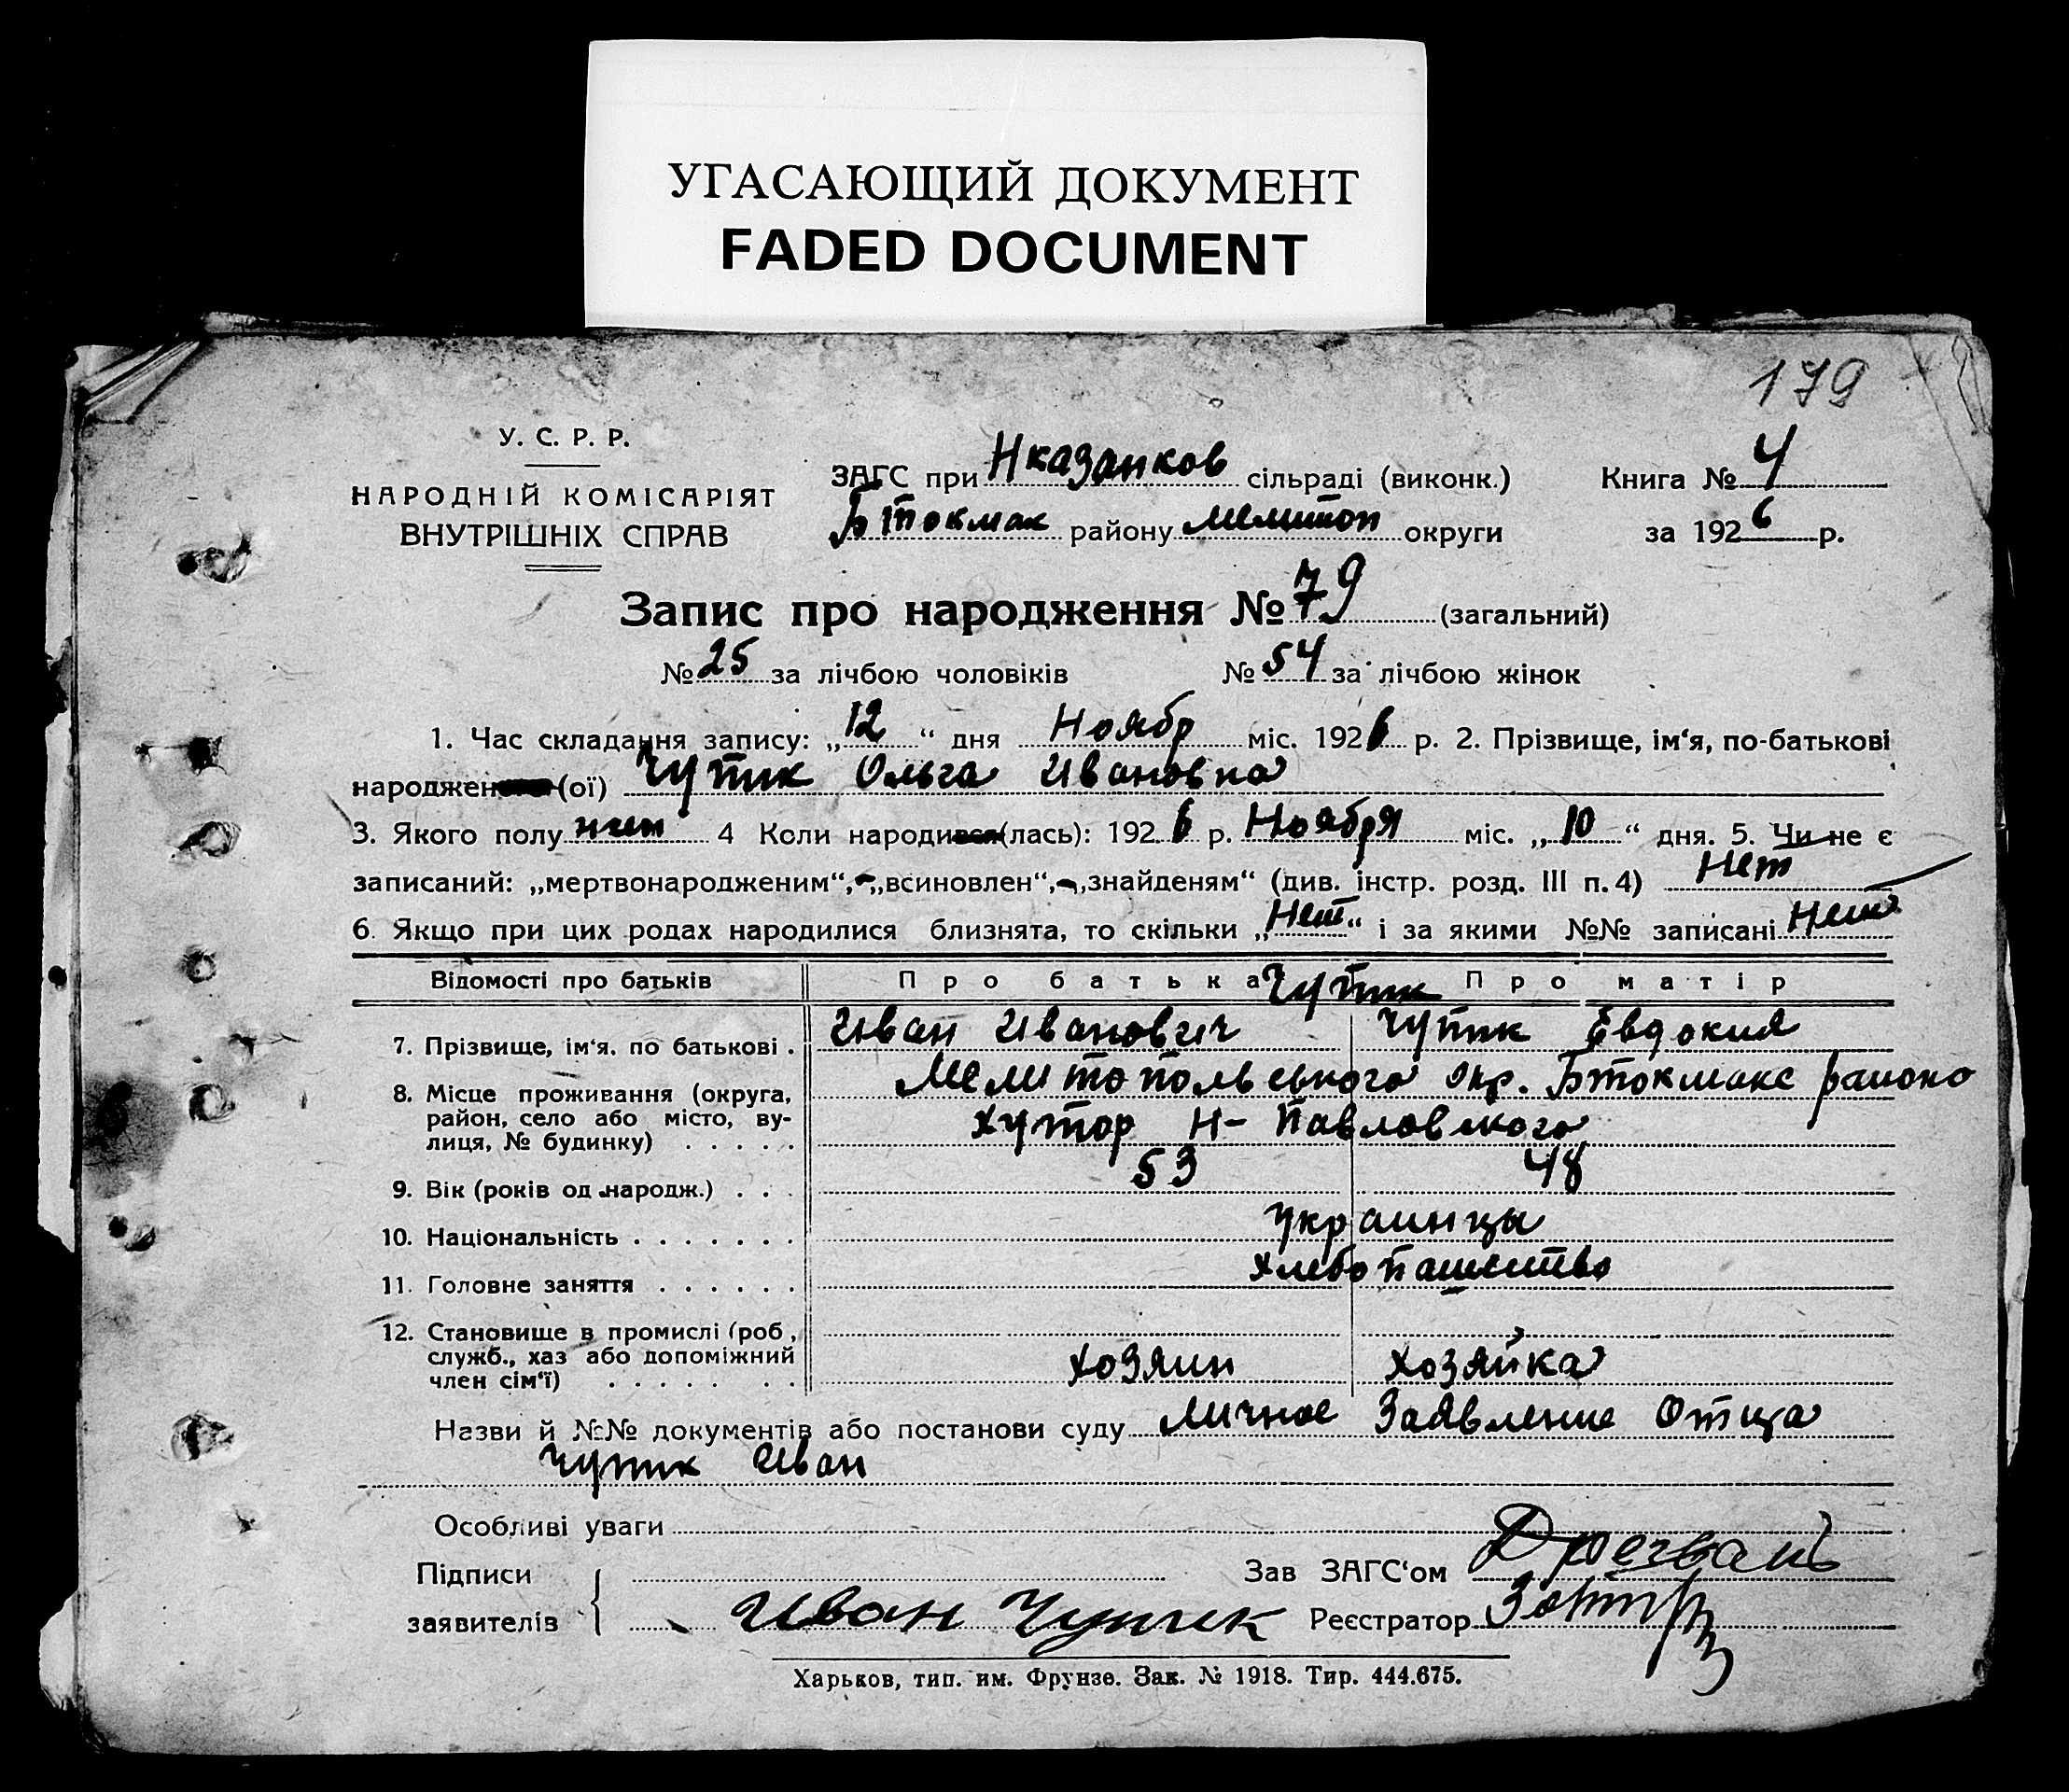 УГАСАЮЩИЙ ДОКУМЕНТ
FADED DOCUMENT
179
У. С. Р. Р.
НАРОДНІЙ КОМІСАРІЯТ
ВНУТРІШНІХ СПРАВ
ЗАГС при Нказанков сільраді (виконк.)
Бтокмак району Мелитоп округи
Книга № 4
за 1926 р.
Запис про народження № 79 (загальний)
№ 25 за лічбою чоловіків № 54 за лічбою жінок
1. Час складання запису: „12“ дня Ноябр міс. 1926 р. 2. Прізвище, ім‘я, по-батькові
народжен (ої) Чупик Ольга Ивановна
3. Якого полу жен 4 Коли народився (лась): 1926 р. Ноября міс. „10“ дня. 5. Чи не є
записаний: „мертвонародженим“, „всиновлен“, „знайденям“ (див. інстр. розд. III п. 4) Нет
6. Якщо при цих родах народилися близнята, то скільки „Нет“ і за якими №№ записані Нет
Відомості про батьків Про батька Про матір
Чупик
7. Прізвище, ім‘я, по батькові . Иван Иванович Чупик Евдокия
8. Місце проживання (округа, район, село або місто, вулиця, № будинку) . . . . .
Мелитопольського окр. Бтокмакс района
хутор Н-Павловского
9. Вік (років од народж.) . . . 53 48
10. Національність . . . . . . . Украинцы
11. Головне заняття . . . . . . Хлебопашество
12. Становище в промислі (роб., служб., хаз або допоміжний член сім‘ї) . . . . . . . Хозяин Хозяйка
Назви й №№ документів або постанови суду Личное Заявление Отца
Чупик Иван
Особливі уваги
Підписи Зав ЗАГС‘ом
заявителів Иван Чупик Реєстратор
Харьков, тип. им. Фрунзе. Зак. № 1918. Тир. 444.675.